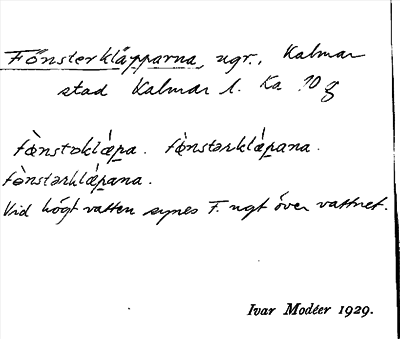 Fönsterkläpparna, ugr., Kalmar
stad Kalmar l. Ka 10 g
fœ̀nstɔklǽpa. fœ̀nstərklǽpana.
fœ̀nstərklǽpana.
Vid högt vatten synes F. ngt över vattnet.
Ivar Modéer 1929.